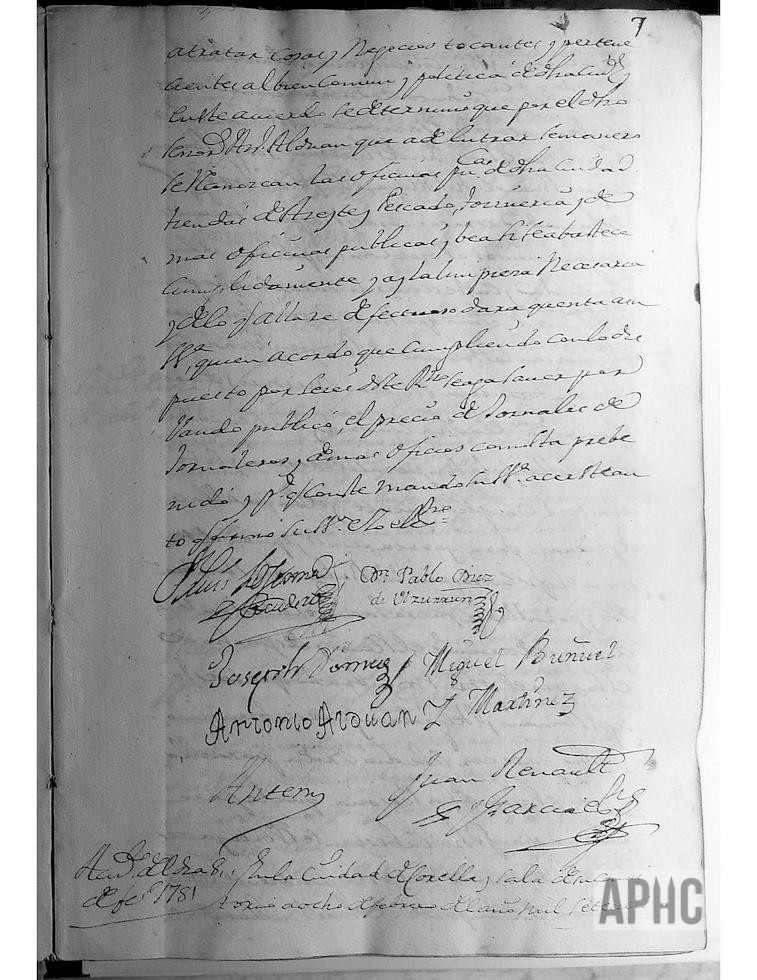 7
a tratar Cosas y Negocios tocantes y pertene
cientes al bien Comun y politica de dha ciud.d y
en este acuerdo se determinò que por el dho
senor Dn Ant.o Alduan que a de entrar semanero
se Reconozcan las oficinas pu.cas de dha Ciudad
tiendas de Azeyte y Pescado, tozineria y de
mas oficinas publicas y vea si se abastece
Cumplidamente y a y la limpieza Necesaria
y de lo q allare defectuoso dara quenta a su
Sa, quien acordo que Cumpliendo con lo dis
puesto por leies deste Rno se aga saver por
Vando publico, el precio de Jornales de
Jornaleros, y demas oficios con multa prebe
nida y p.a q Conste mando su Sa. acer este au
to q firmò su Sa. e yo el ssno =
Luis de Sesma
y Escudero
Dn. Pablo Diez
de Ulzurrun
Joseph Miguel Buñuel
Antonio Alduan y Martinez
Ante my Juan Renault
y Garcia ssno
Auto del dia 8
de feb.o 1781
En la Ciudad de Corella y sala de su Consis
torio a ocho de febrero del año mil sete
APHC